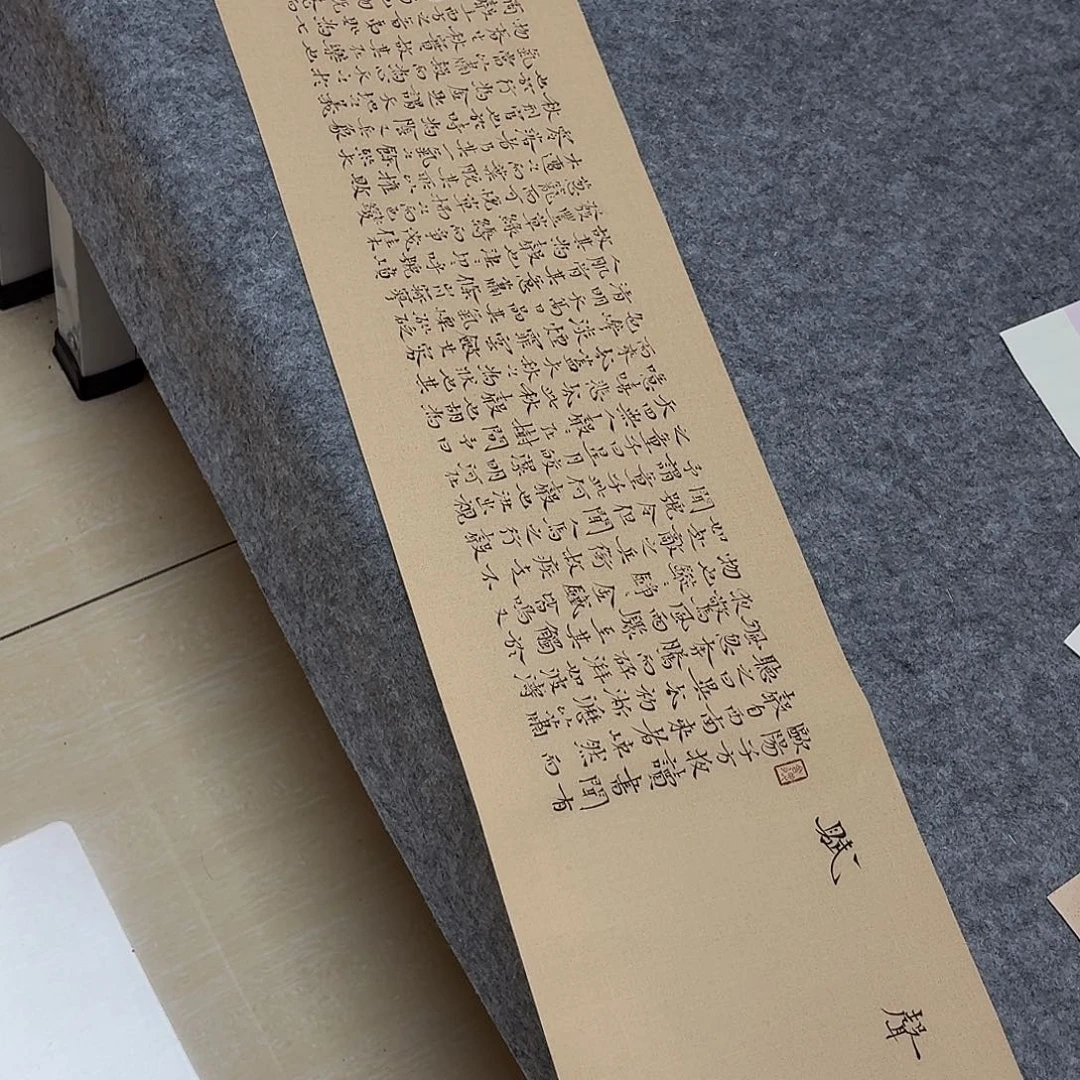 聲賦
歐陽子方夜讀書聞有
聲自西南來者悚然而
聽之曰異哉初淅瀝以蕭
颯忽奔騰而砰湃如波濤
夜驚風雨驟至其觸於
物也鏦鏦錚錚金鐵皆鳴又
如赴敵之兵銜枚疾走不
聞號令但聞人馬之行聲
予謂童子此何聲也汝出視
之童子曰星月皎潔明河在
天四無人聲聲在樹間予曰
噫嘻悲哉此秋聲也胡為
而來哉蓋夫秋之為狀也其
色慘淡煙霏雲斂其容
清明天高日晶其氣慄冽砭
人肌骨其意蕭條山川寂寥
故其為聲也淒淒切切呼號憤
發豐草綠縟而爭茂佳木
蔥籠而可悅草拂之而色變
木遭之而葉脫其所以摧敗
零落者乃其一氣之餘烈夫
秋刑官也於時為陰又兵象
也於行為金是謂天地之義
氣常以肅殺而為心天之於
物春生秋實故其在樂也
商聲主西方之音夷則為七